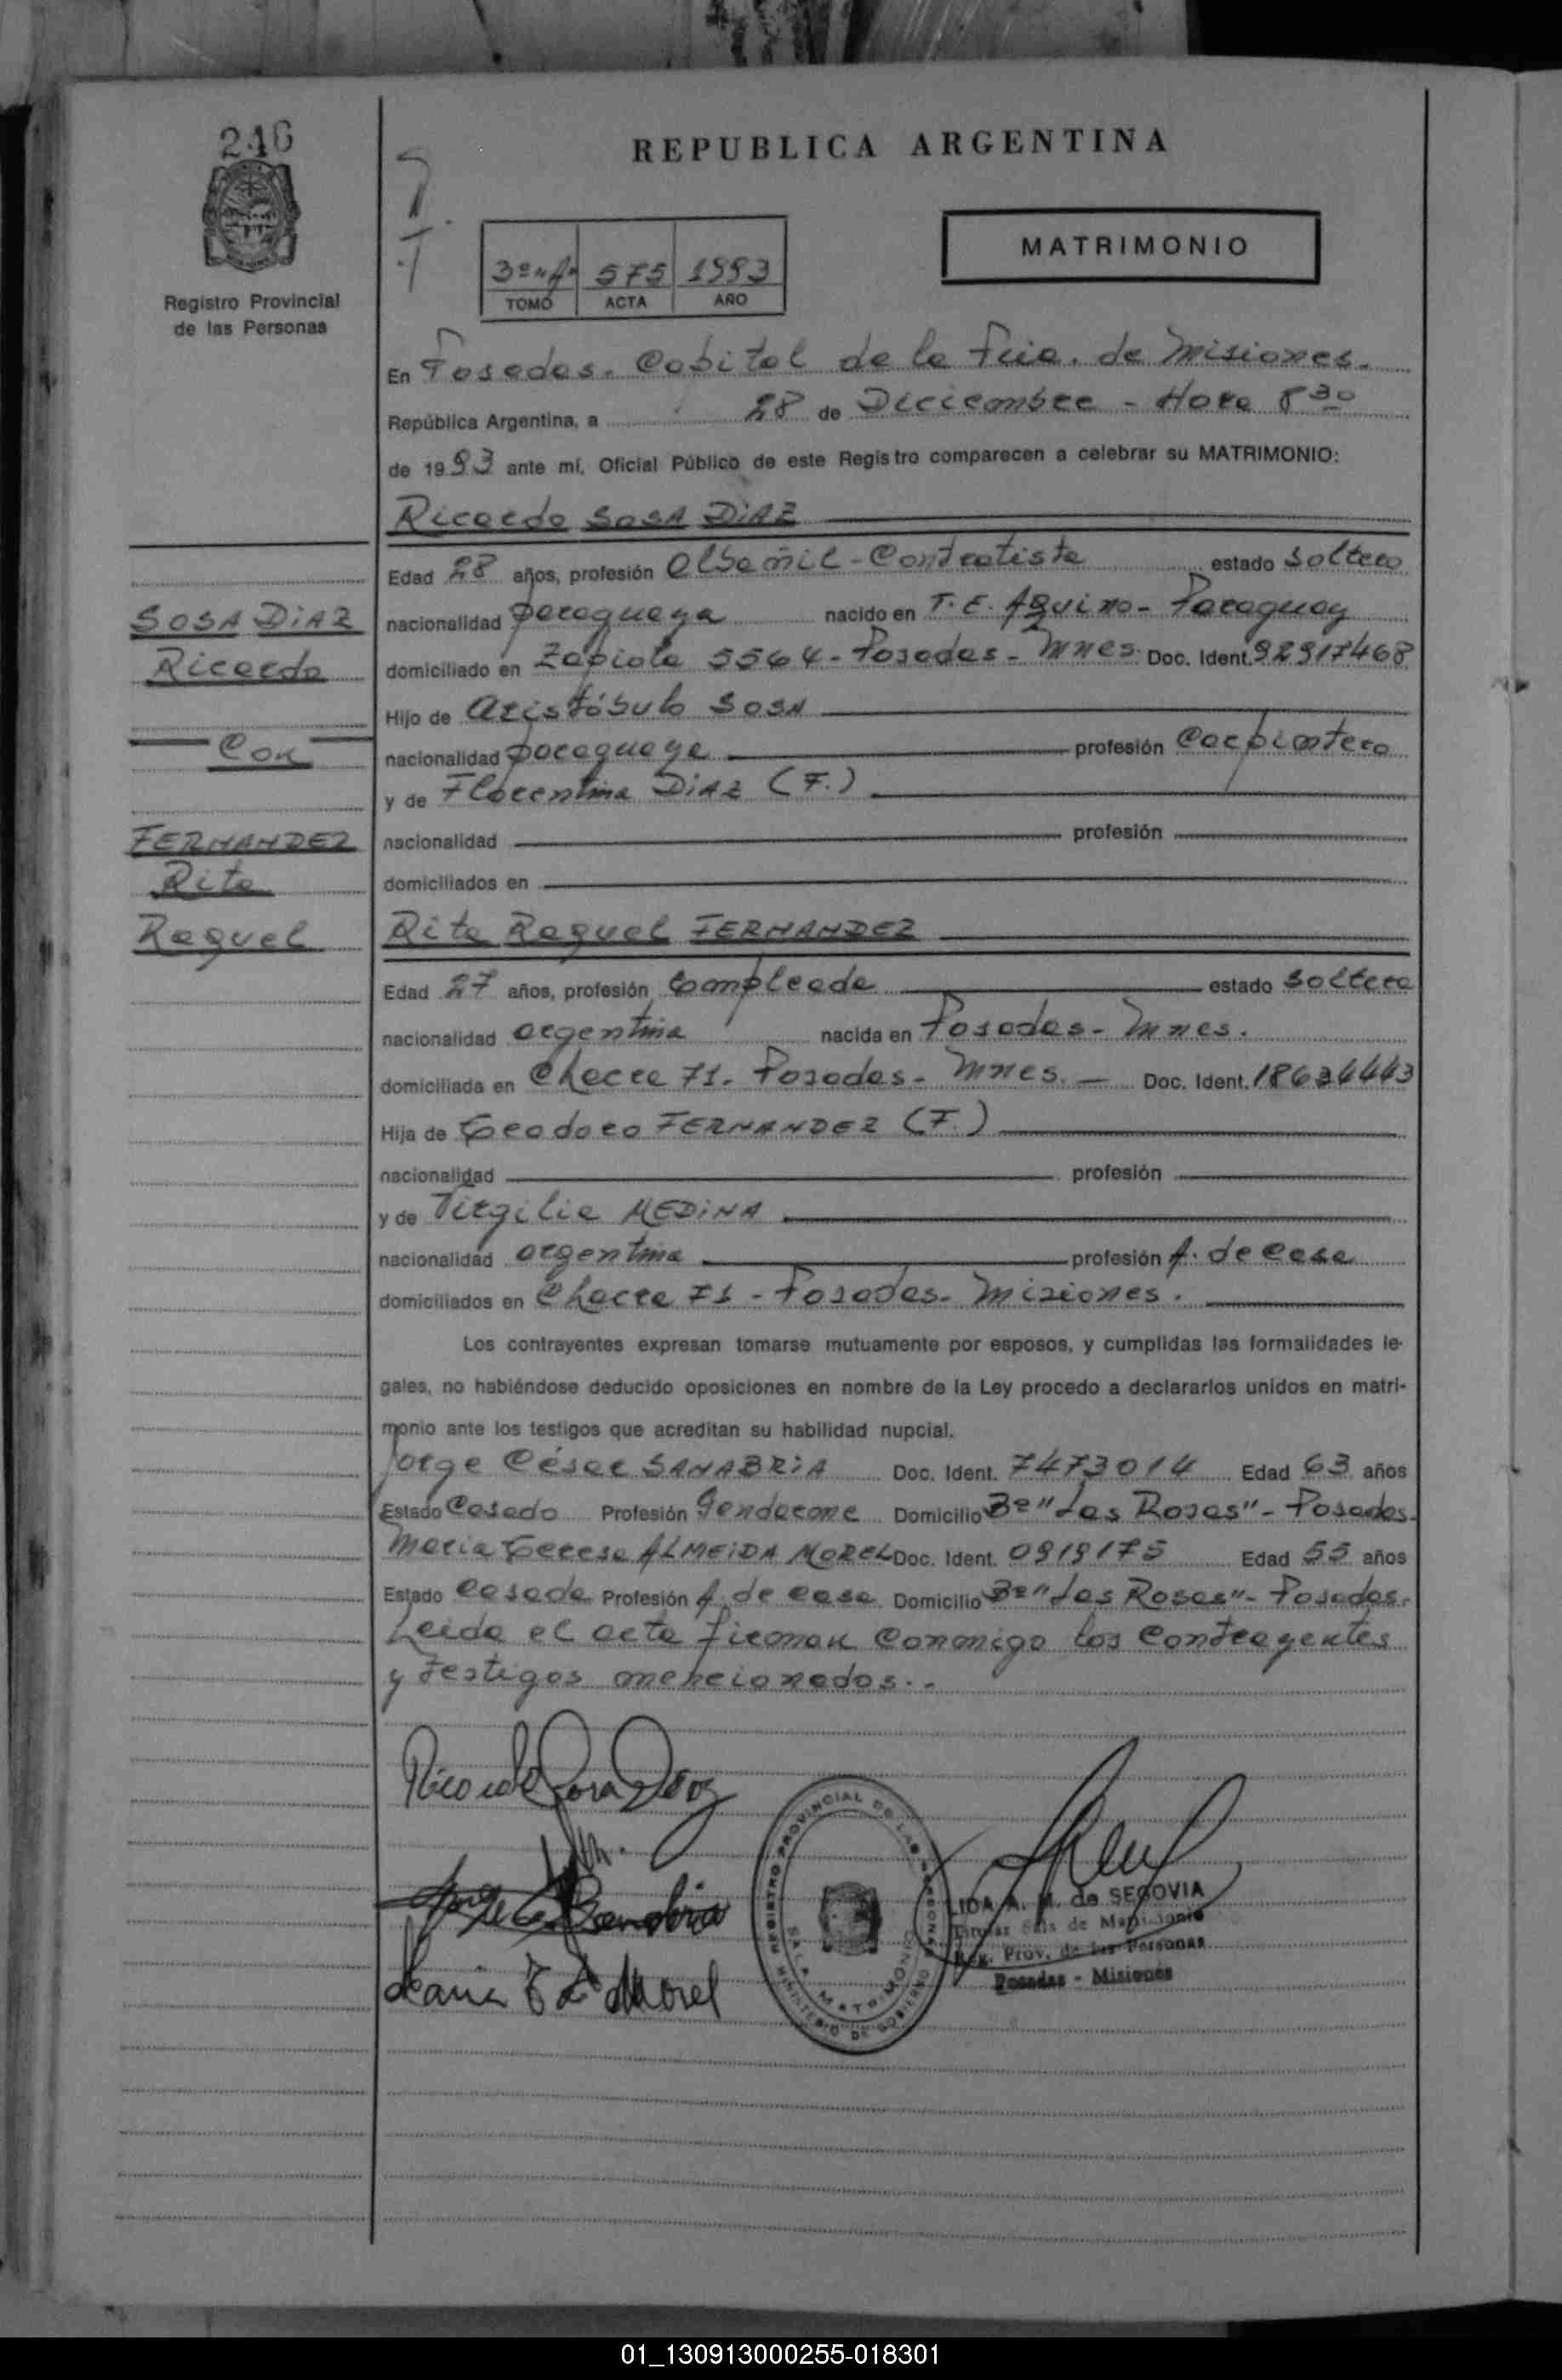 246
REPUBLICA ARGENTINA
MATRIMONIO
Registro Provincial
de las Personas
3º "A" 575 1993
TOMO ACTA AÑO
En Posadas. Capital de la Pcia. de Misiones.
República Argentina, a 28 de Diciembre - Hora 8 30
de 1993 ante mí, Oficial Público de este Registro comparecen a celebrar su MATRIMONIO:
Ricardo SOSA DIAZ
Edad 28 años, profesión Albañil - Contratista estado Soltero
nacionalidad paraguaya nacido en T. E. AQuino - Paraguay
domiciliado en Zapiola 5564 - Posadas - Mnes. Doc. Ident. 92917468
Hijo de Aristóbulo SOSA
nacionalidad paraguaya profesión Carpintero
y de Florentina DIAZ (F.)
nacionalidad profesión
domiciliados en
Rita Raquel FERNANDEZ
Edad 27 años, profesión Empleada estado Soltera
nacionalidad argentina nacida en Posadas - Mnes.
domiciliada en Chacra 71. Posadas - Mnes. - Doc. Ident. 18634443
Hija de Teodoro FERNANDEZ (F.)
nacionalidad profesión
y de Virgilia MEDINA
nacionalidad argentina profesión A. de casa
domiciliados en Chacra 71 - Posadas - Misiones.
Los contrayentes expresan tomarse mutuamente por esposos, y cumplidas las formalidades le-
gales, no habiéndose deducido oposiciones en nombre de la Ley procedo a declararlos unidos en matri-
monio ante los testigos que acreditan su habilidad nupcial.
Jorge César SANABRIA Doc. Ident. 7473014 Edad 63 años
Estado Casado Profesión Gendarme Domicilio Bº "Las Rosas" - Posadas.
Maria Teresa ALMEIDA MOREL Doc. Ident. 0919175 Edad 55 años
Estado Casada Profesión A. de casa Domicilio Bº "Las Rosas" - Posadas.
Leida el acta firman conmigo los contrayentes
y testigos mencionados. -
SOSA DIAZ
Ricardo
Con
FERNANDEZ
Rita
Raquel
Ricardo Sosa Diaz
Jorge C Sanabria
Maria T A Morel
REGISTRO PROVINCIAL DE LAS PERSONAS
SALA MATRIMONIO
MINISTERIO DE GOBIERNO
LIDA A. M. de SEGOVIA
Titular Sala de Matrimonio
Reg. Prov. de las Personas
Posadas - Misiones
01_130913000255-018301